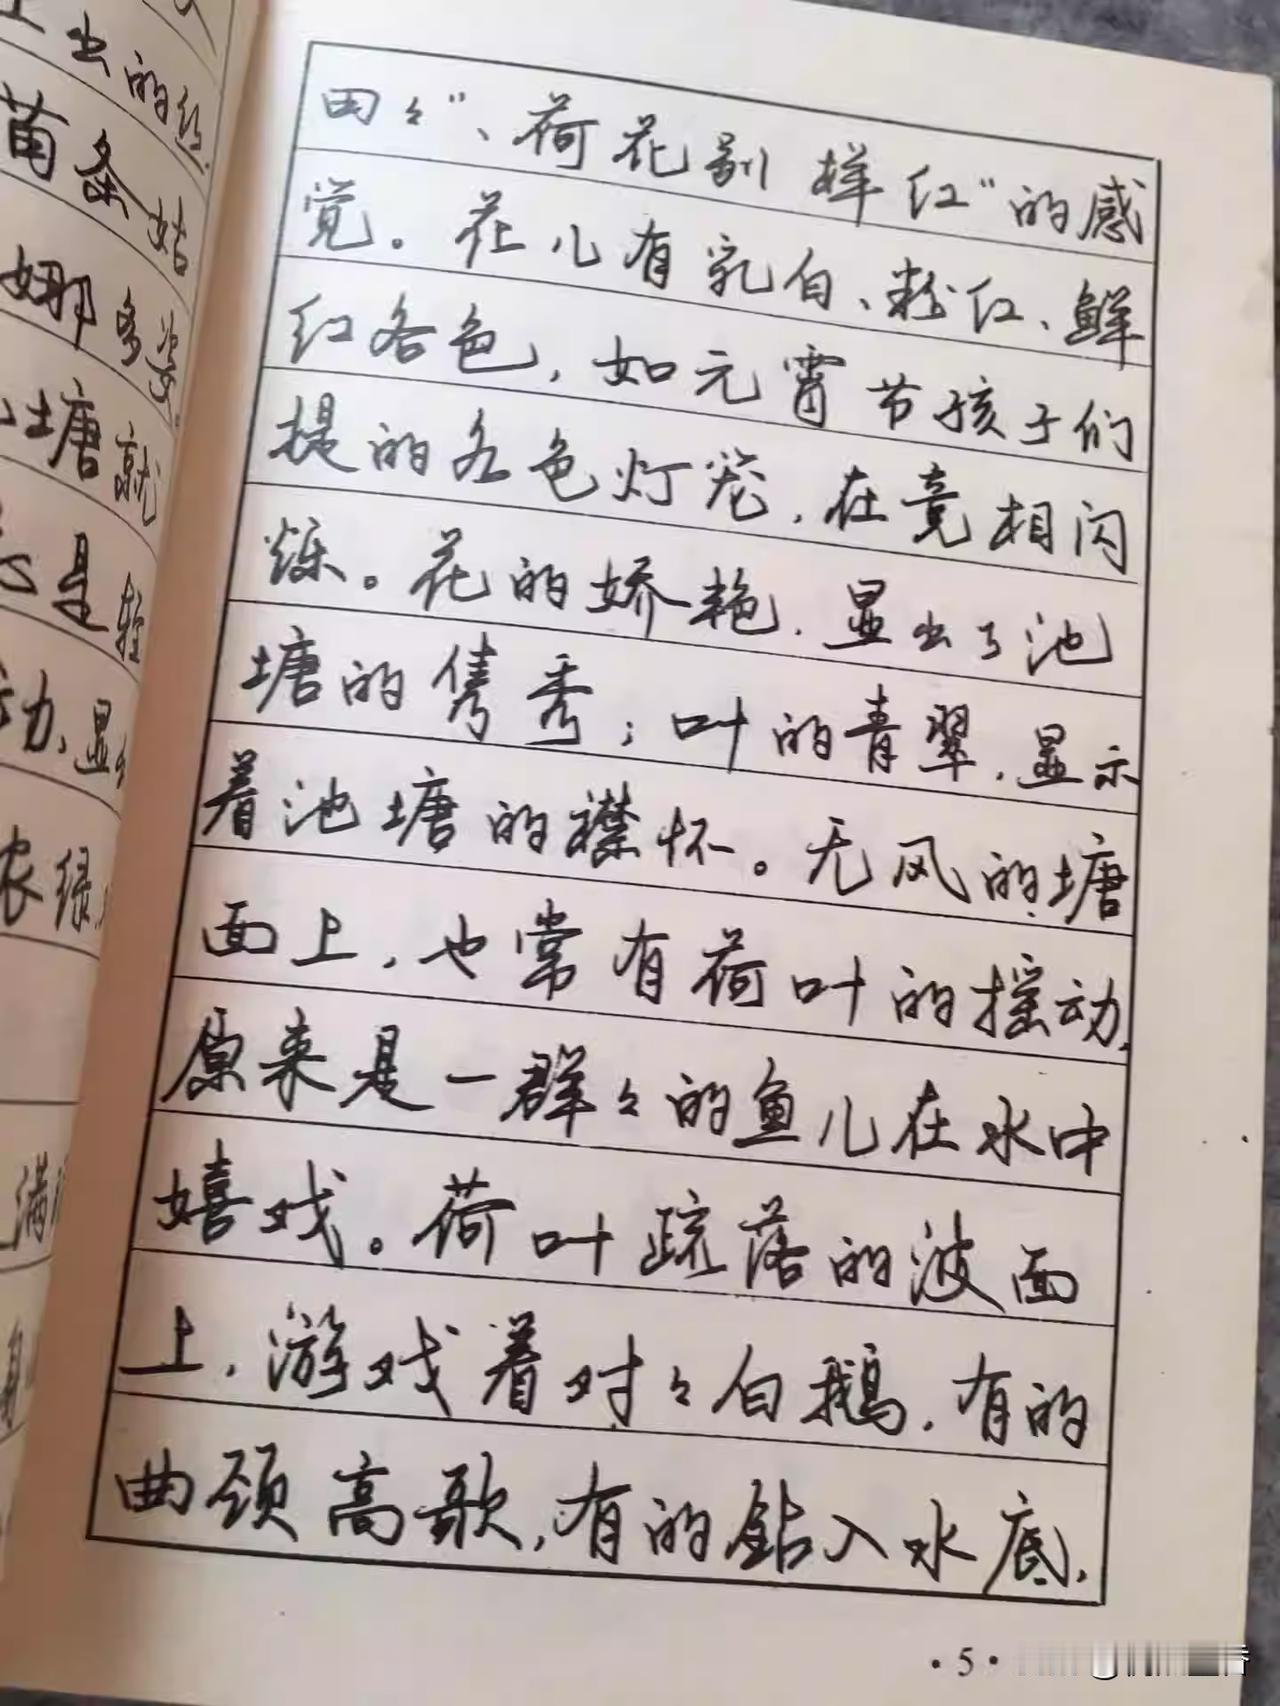 上虫的丝
苗条姑
娜多姿。
塘就
是轻
动、显
农绿
满
田々”、荷花别样红”的感
觉。花儿有乳白、粉红、鲜
红各色，如元宵节孩子们
提的各色灯笼，在竞相闪
烁。花的娇艳，显出了池
塘的隽秀；叶的青翠，显示
着池塘的襟怀。无风的塘
面上，也常有荷叶的摇动，
原来是一群々的鱼儿在水中
嬉戏。荷叶疏落的波面
上，游戏着对々白鹅，有的
曲颈高歌，有的钻入水底，
·5·